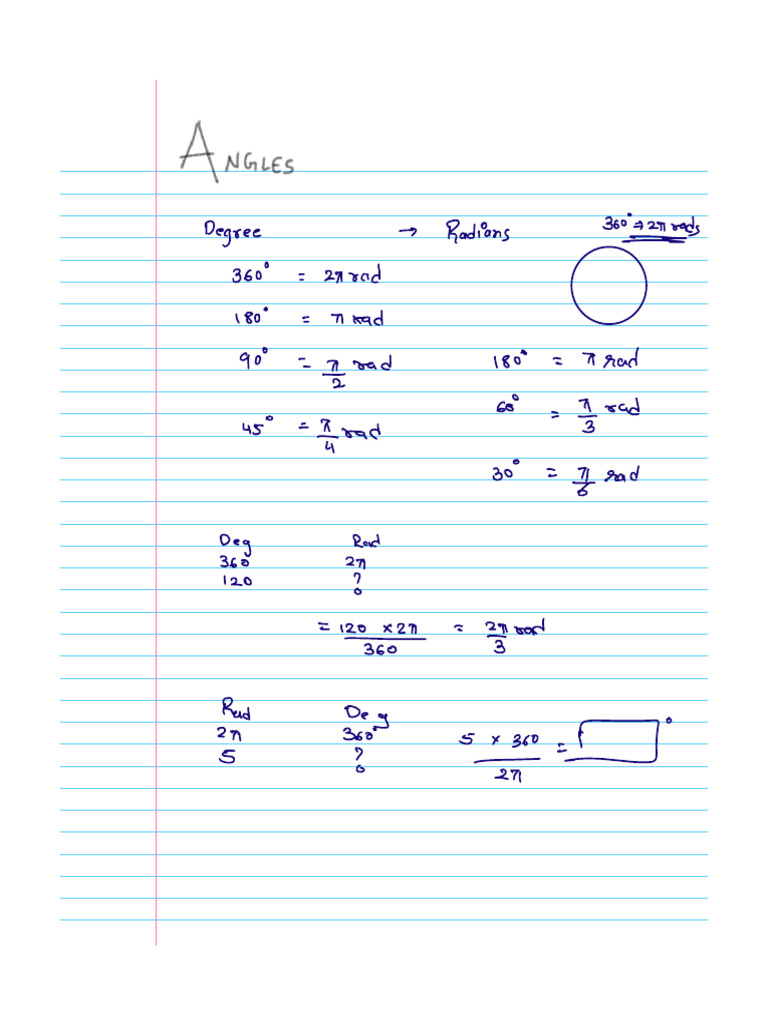 ANGLES
Degree → Radians 360° ⇒ 2π rads
360° = 2π rad
180° = π rad
90° = π/2 rad 180° = π rad
45° = π/4 rad 60° = π/3 rad
30° = π/6 rad
Deg Rad
360 2π
120 ?
= 120 × 2π / 360 = 2π/3 rad
Rad Deg
2π 360°
5 ? 5 × 360 / 2π = °